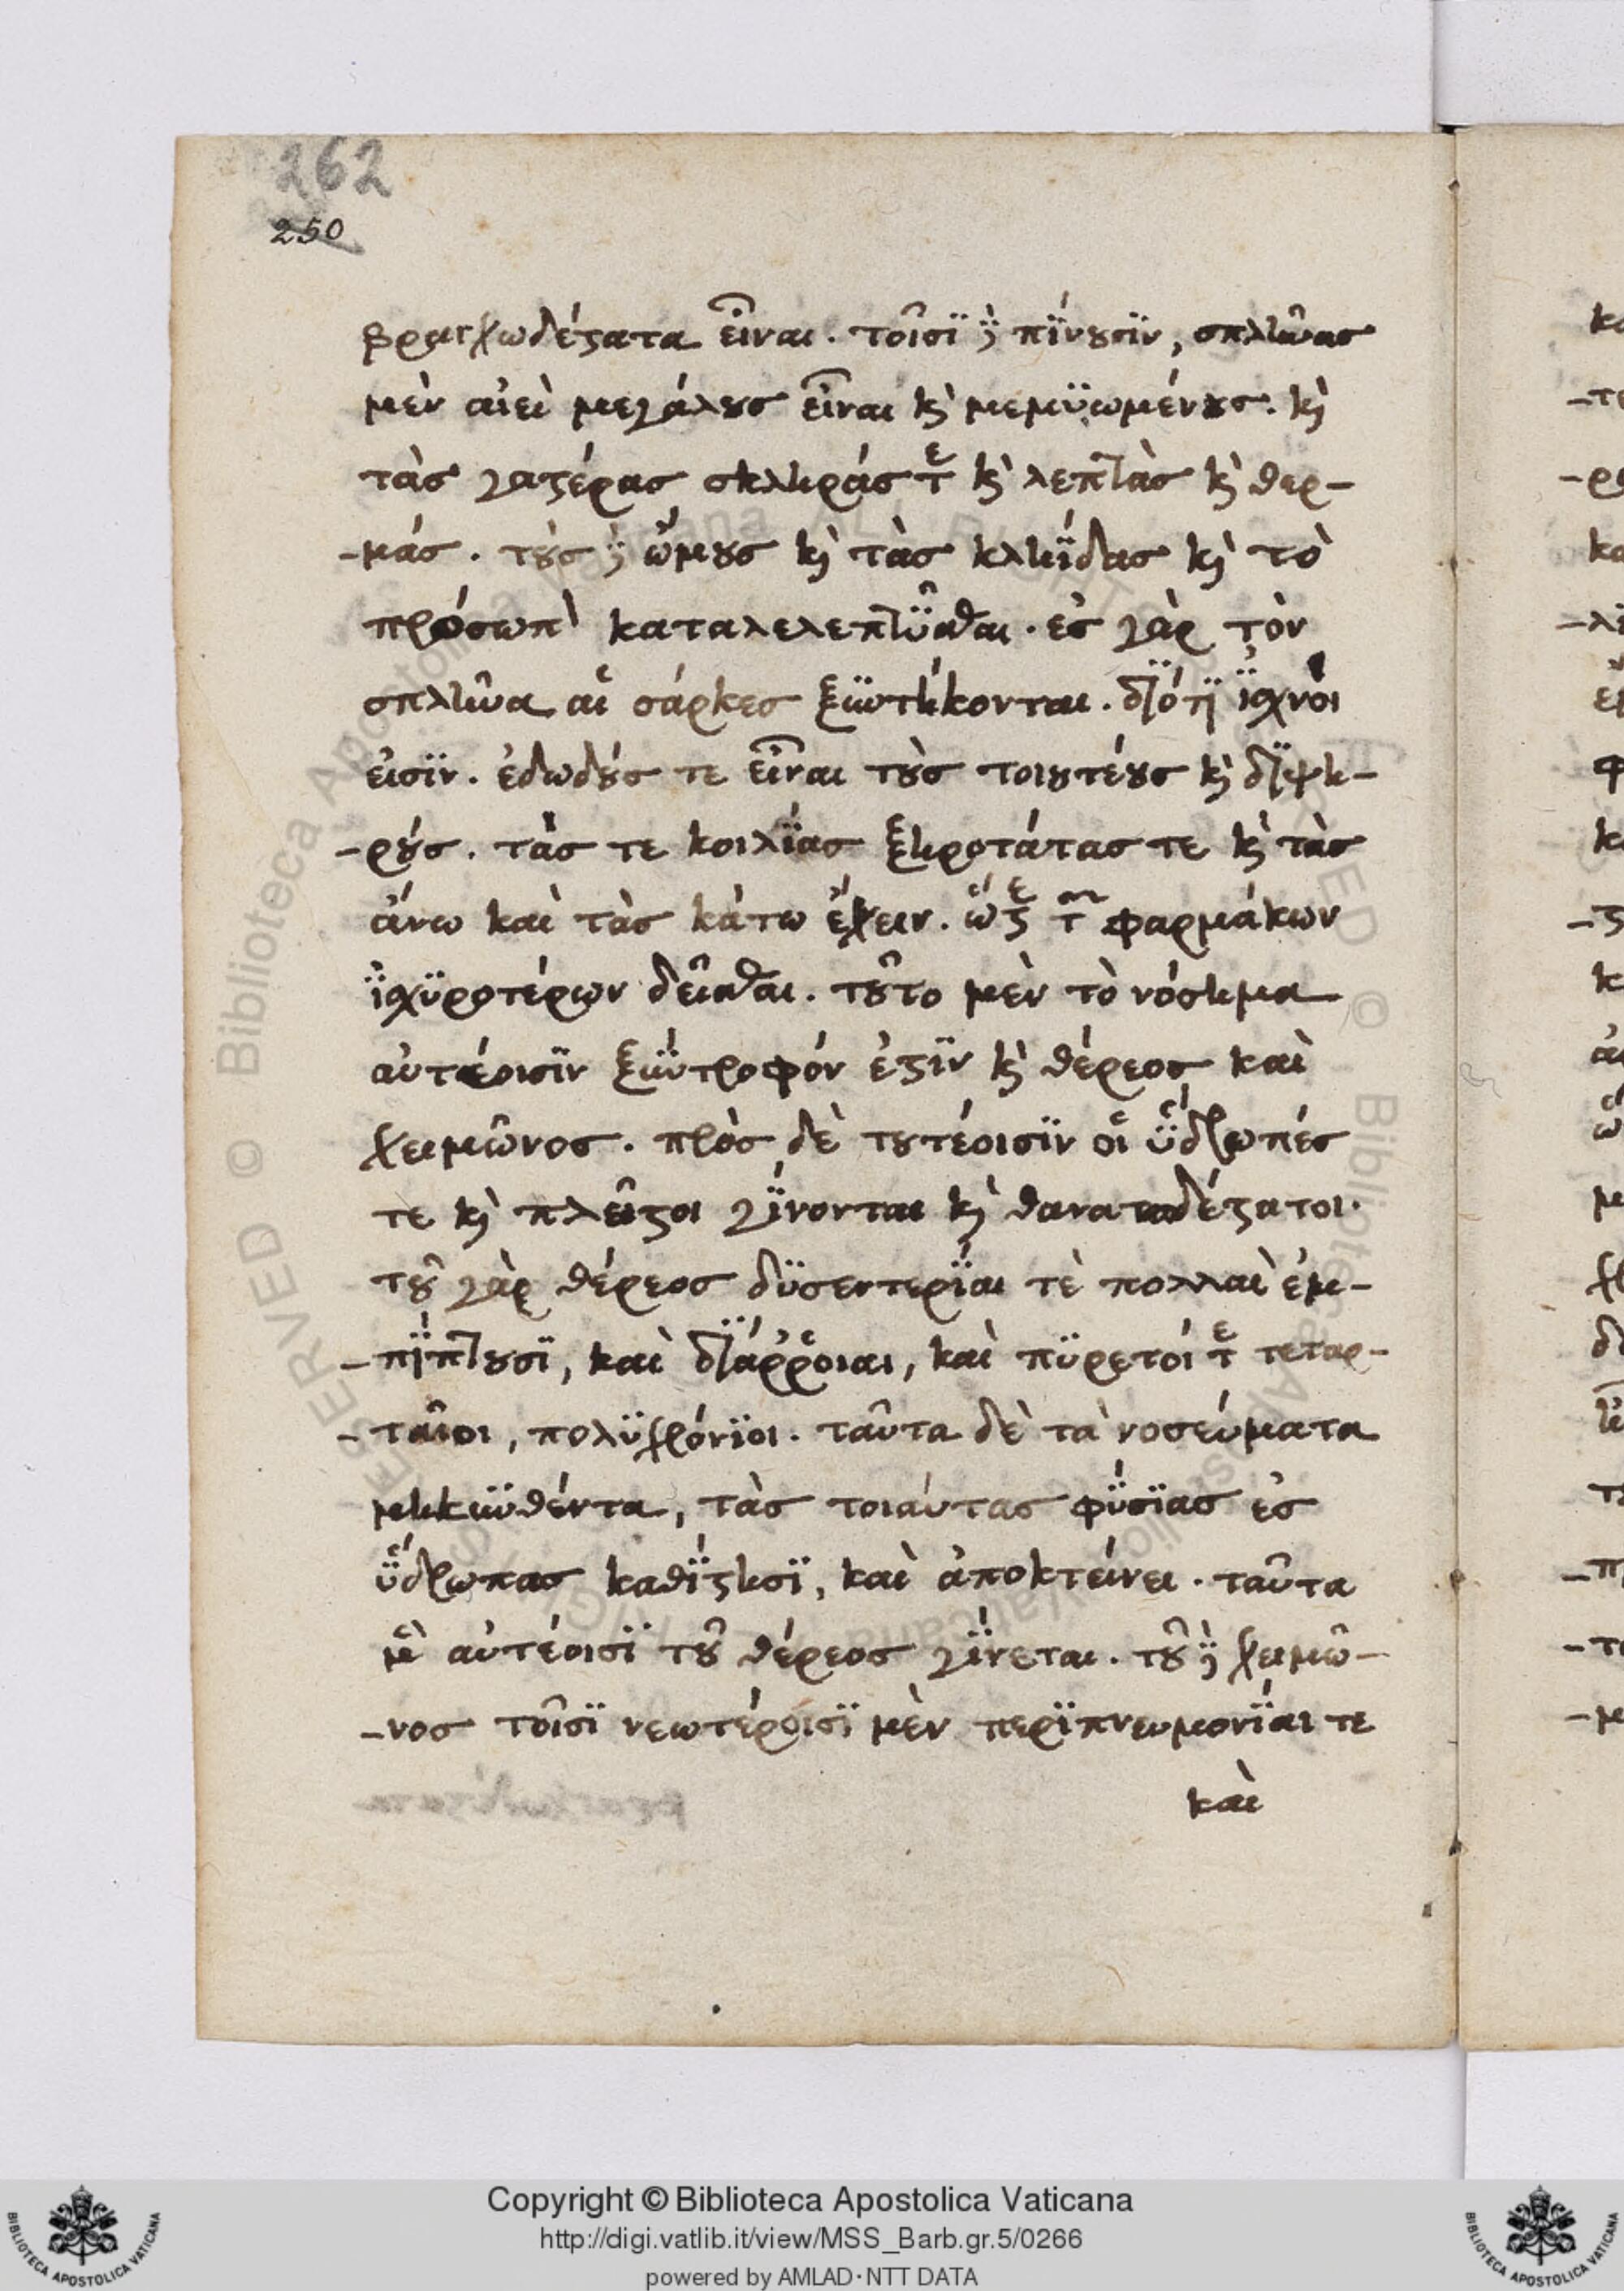 262
250
βραγχωδέϛατα εἶναι. τοῖσϊ δὲ πΐνȣσϊν, σπλῆνας
μὲν αἰεὶ μεγάλȣς εἶναι κὶ μεμϋωμένȣς. κὶ
τὰς γαϛέρας σκληράς τε κὶ λεπτὰς κὶ θερ-
-μάς. τȣ̀ς δὲ ὤμȣς κὶ τὰς κληΐδας κὶ τὸ
πρόσωπὸν καταλελεπτῧσθαι. ἐς γὰρ τὸν
σπλῆνα αἱ σάρκες ξϋντήκονται. δϊότϊ ἰσχνόι
εἰσϊν. ἐδωδȣ́ς τε εἶναι τȣ̀ς τοιȣτέȣς κὶ δϊψη-
-ρȣ́ς. τάς τε κοιλΐας ξηροτάτας τε κὶ τὰς
ἄνω καὶ τὰς κάτω ἔχειν. ὥϛε τῶν φαρμάκων
ἰσχϋροτέρων δεῖσθαι. τȣ͂το μὲν τὸ νόσημα
αὐτέοισϊν ξΰντροφόν ἐϛϊν κὶ θέρεος καὶ
χειμῶνος. πρὸς δὲ τȣτέοισϊν οἱ ὕδρωπές
τε κὶ πλεῖϛοι γΐνονται κὶ θανατωδέϛατοι.
τȣ͂ γὰρ θέρεος δϋσεντερΐαι τὲ πολλαὶ ἐμ-
-πΐπτȣσϊ, καὶ δϊάῤῥοιαι, καὶ πϋρετοί τε τεταρ-
-ταῖοι, πολϋχρόνϊοι. ταῦτα δὲ τὰ νοσεύματα
μηκϋνθέντα, τὰς τοιάυτας φΰσϊας ἐς
ὕδρωπας καθΐϛησϊ, καὶ ἀποκτείνει. ταῦτα
μὲν αὐτέοισϊ τȣ͂ θέρεος γΐνεται. τȣ͂ δὲ χειμῶ-
-νος τοῖσϊ νεωτέροισϊ μὲν περϊπνευμονΐαι τε
καὶ
Copyright © Biblioteca Apostolica Vaticana
http://digi.vatlib.it/view/MSS_Barb.gr.5/0266
powered by AMLAD·NTT DATA